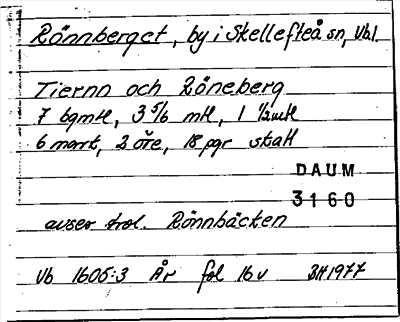 Rönnberget, by i Skellefteå sn, Vbl.
Tiernn och Röneberg
7 bgmtl, 3 5/6 mtl, 1 1/2mtl
6 mark, 2 öre, 18 pgr skatt
DAUM
3160
avser trol. Rönnbäcken
Vb 1605:3 År fol 16v BH1977